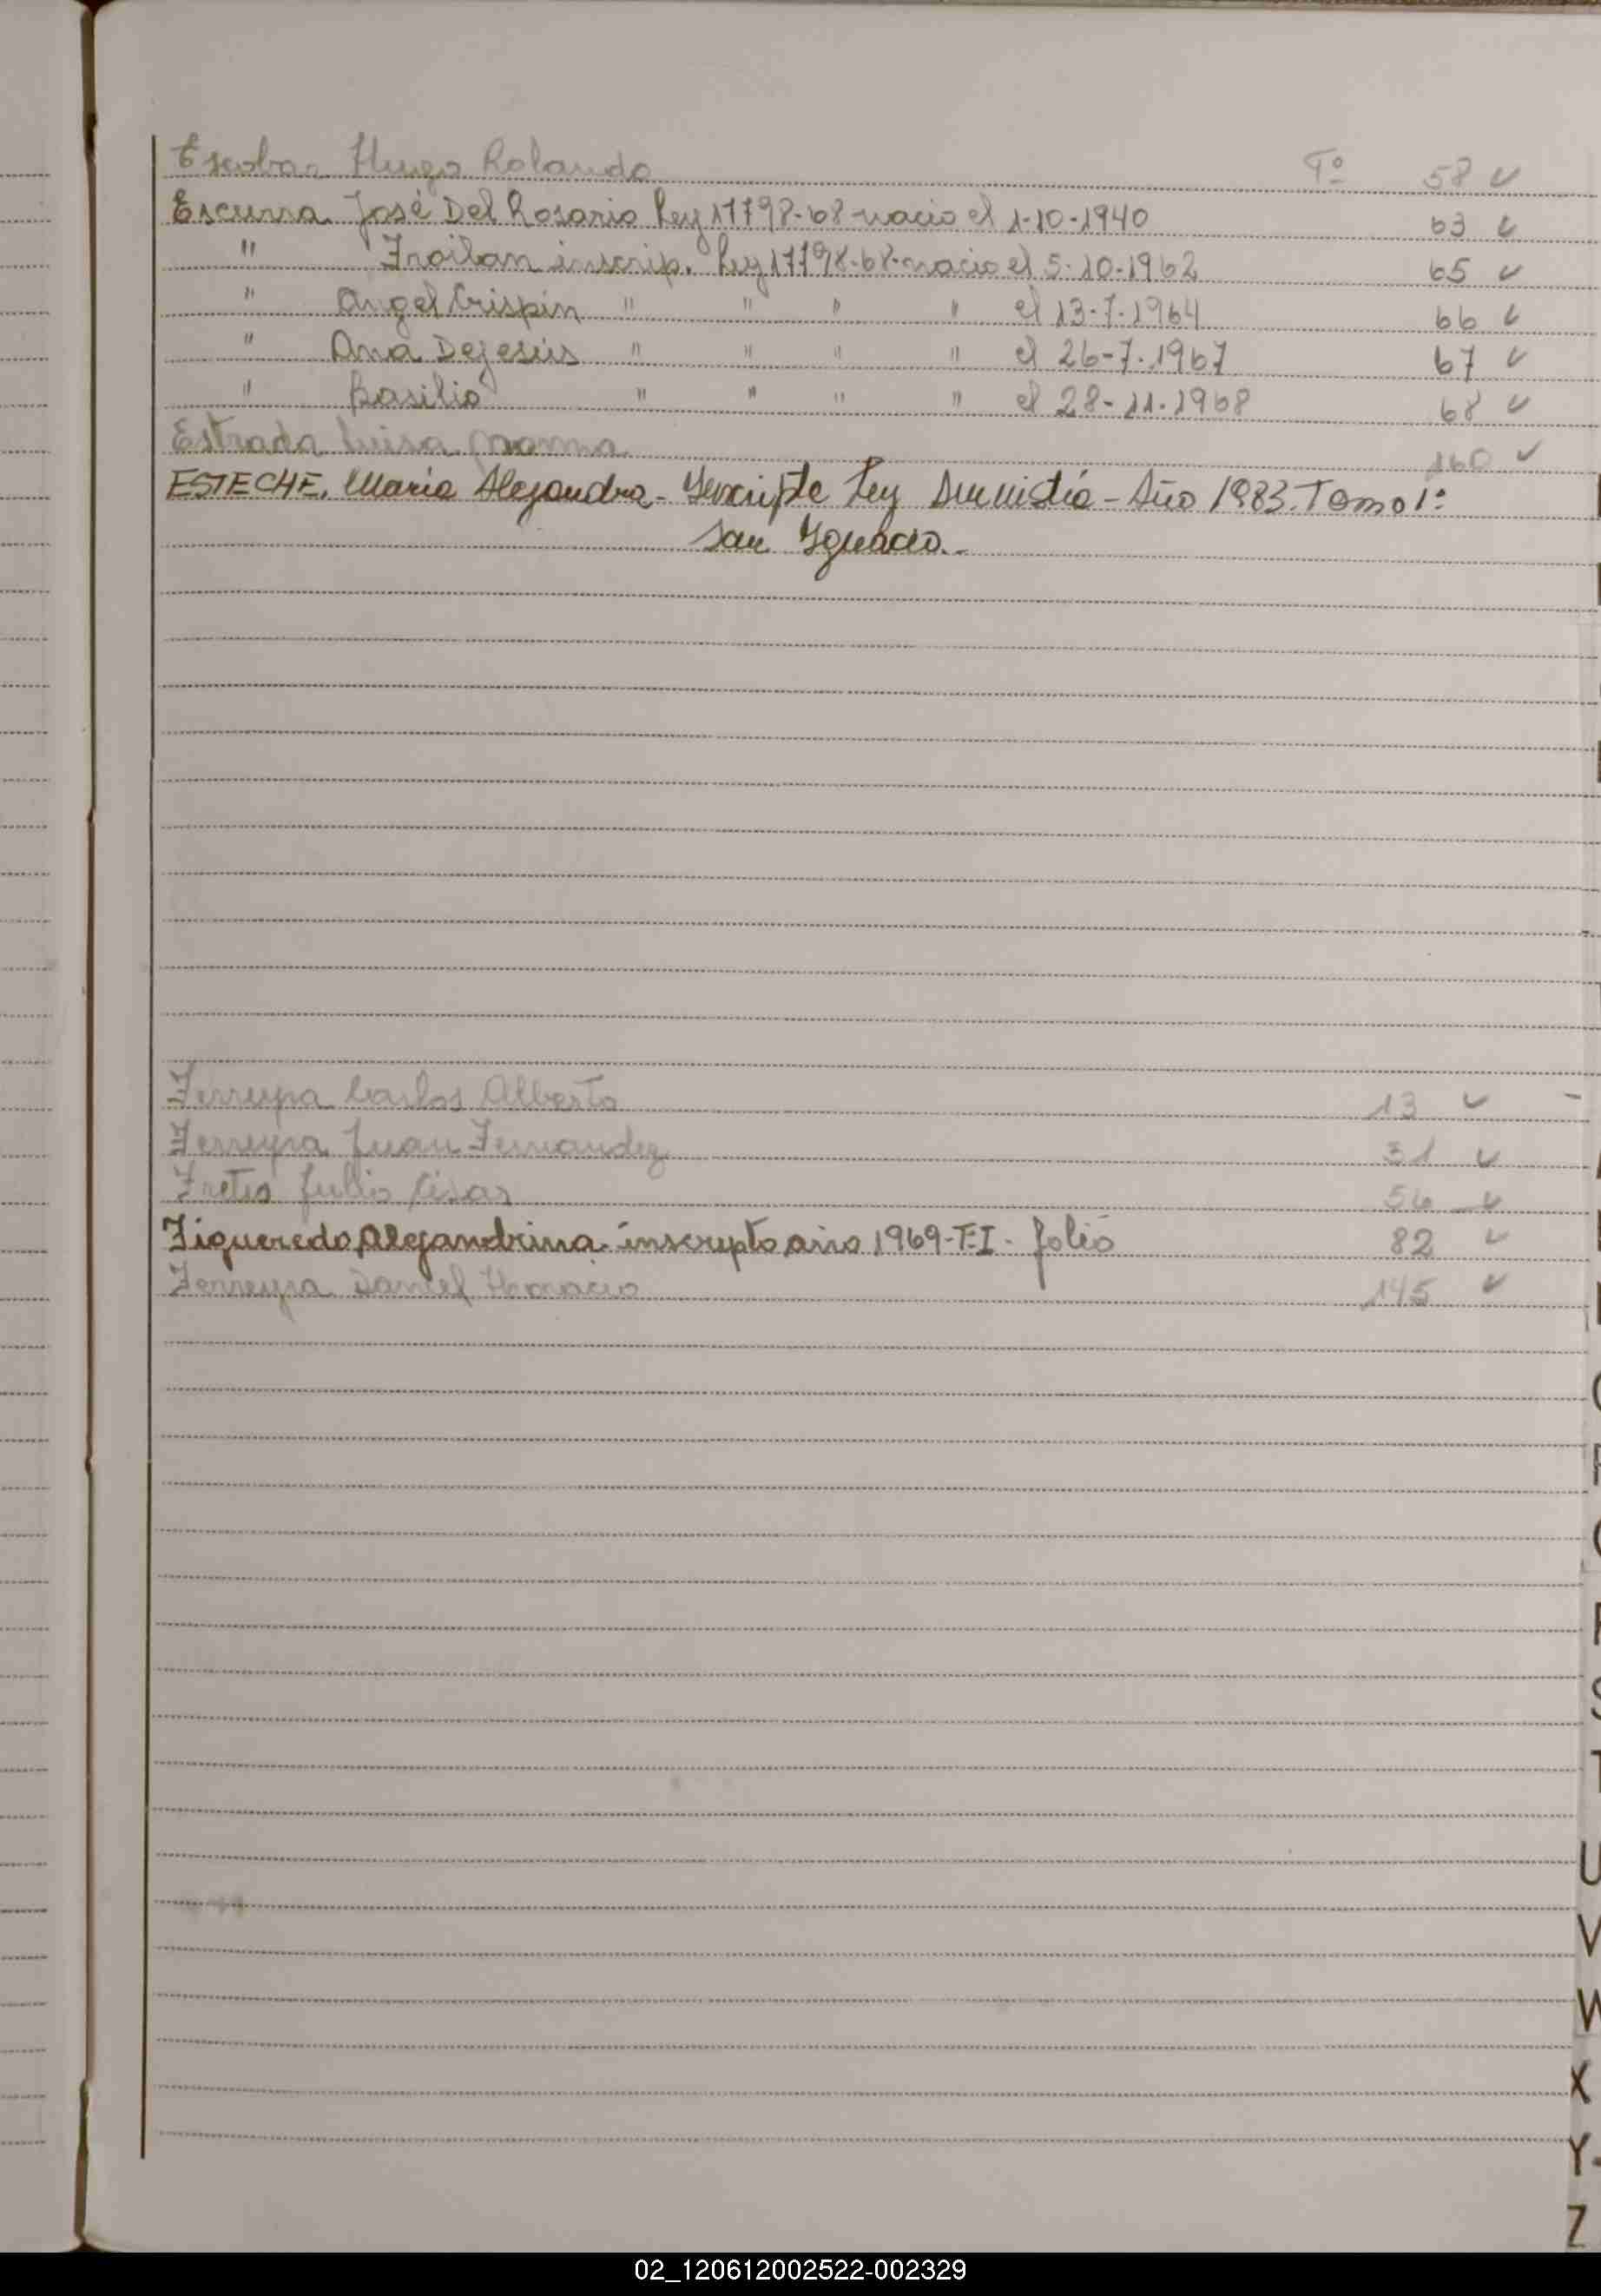 Escobar Hugo Rolando Fº 58 ✓
Escurra José Del Rosario Ley 17798-68-nacio el 1-10-1940 63 ✓
" Froilan inscrip. Ley 17798-68-nacio el 5-10-1962 65 ✓
" Angel Crispin " " " " el 13-7-1964 66 ✓
" Ana Dejesús " " " " el 26-7-1967 67 ✓
" Basilio " " " " el 28-11-1968 68 ✓
Estrada Luisa Norma 160 ✓
ESTECHE, María Alejandra - Inscripta Ley Amnistía - Año 1983. Tomo 1º
San Ignacio.-
Ferreyra Carlos Alberto 13 ✓
Ferreyra Juan Fernandez 31 ✓
Fretes Julio César 56 ✓
Figueredo Alejandrina inscripto año 1969-T-I- folio 82 ✓
Ferreyra Daniel Horacio 145 ✓
U
V
W
X
Y
Z
02_120612002522-002329